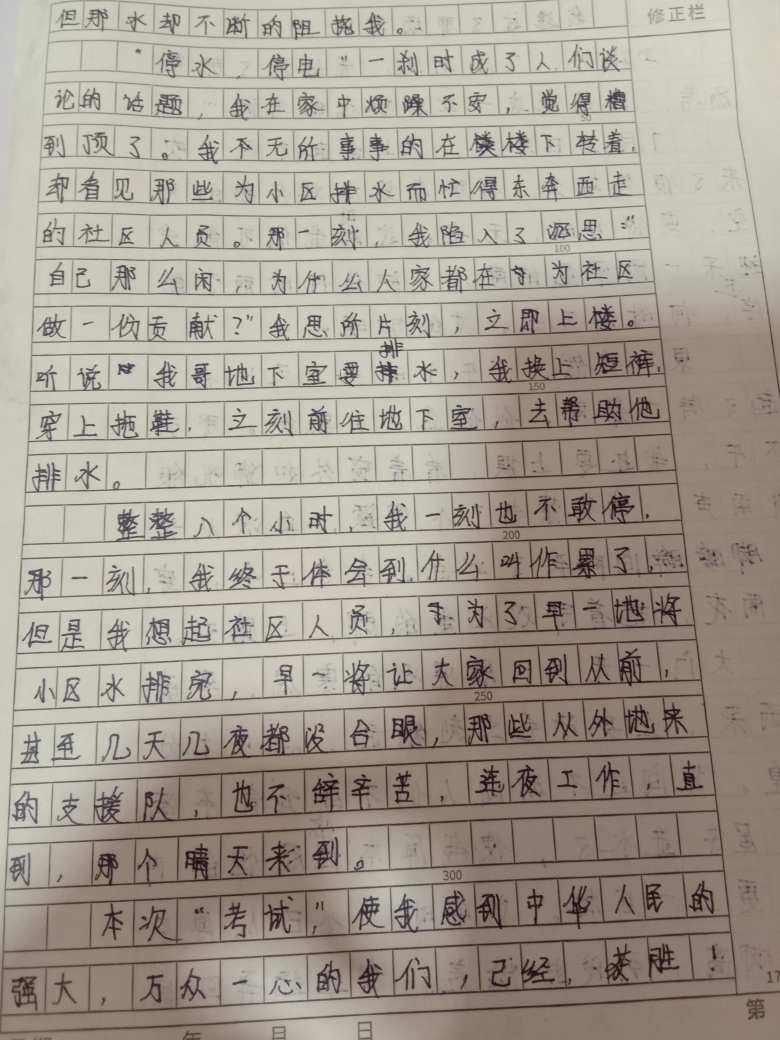 但那水却不断的阻拖我。
修正栏
"停水，停电"一刹时成了人们谈
论的话题，我在家中烦燥不安，觉得糟
到顶了。我不无所事事的在楼楼下转着，
却看见那些为小区排水而忙得东奔西走
的社区人员。那一刻，我陷入了沉思："
100
自己那么闲，为什么人家都在为社区
做一份贡献？"我思所片刻，立即上楼。
听说我哥地下室要排水，我换上短裤，
150
穿上拖鞋，立刻前往地下室，去帮助他
排水。
整整八个小时，我一刻也不敢停，
200
那一刻，我终于体会到什么叫作累了，
但是我想起社区人员，为了早一地将
小区水排完，早一将让大家回到从前，
250
甚至几天几夜都没合眼，那些从外地来
的支援队，也不辞辛苦，连夜工作，直
到，那个晴天来到。
300
本次"考试"，使我感到中华人民的
强大，万众一心的我们，已经，获胜！
17
年 月 日
第